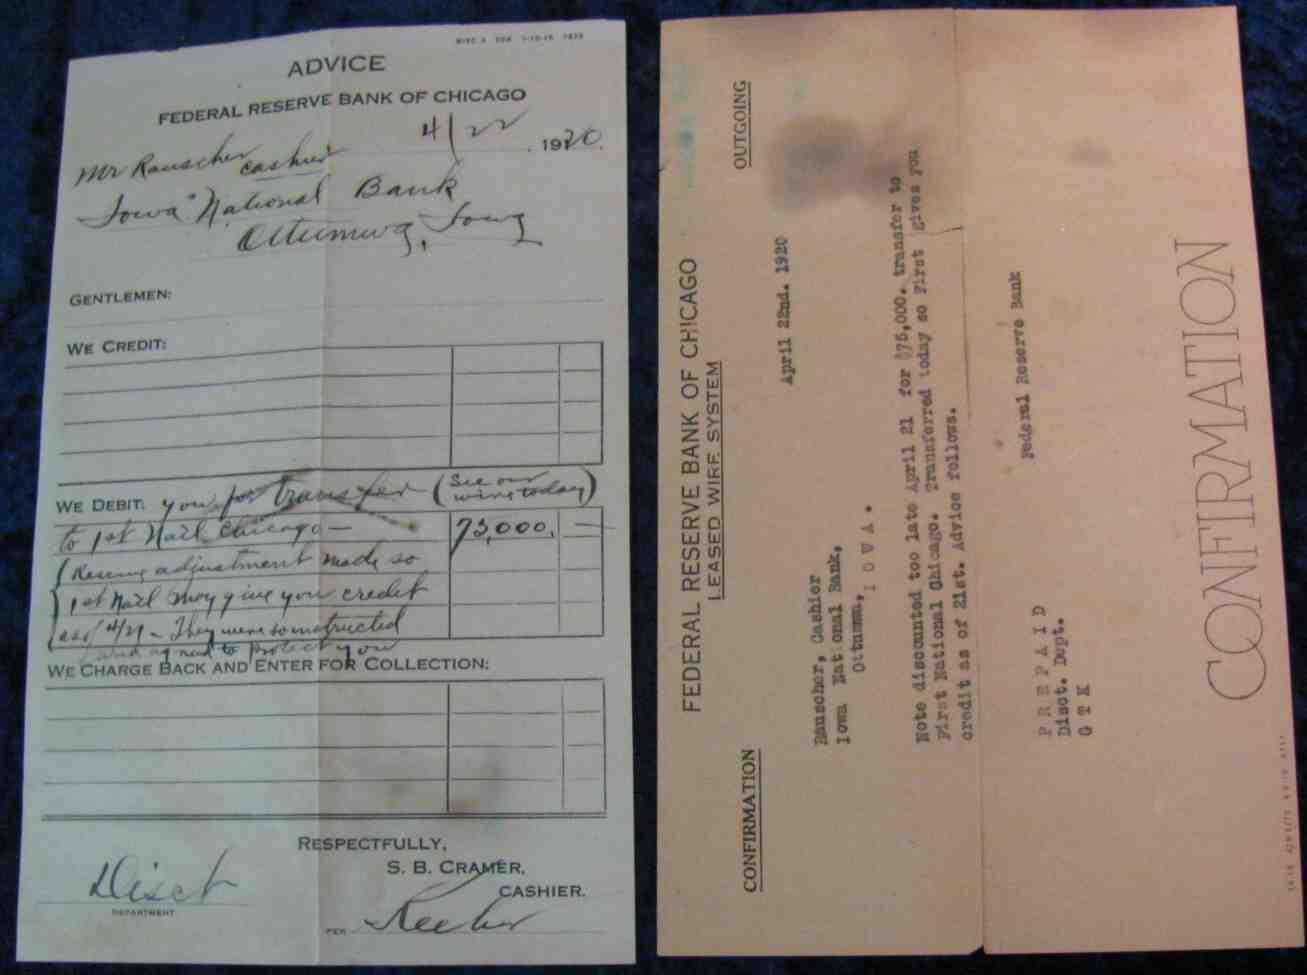 ADVICE
FEDERAL RESERVE BANK OF CHICAGO
4/22 1920.
Mr Rauscher cashier
Iowa National Bank
Ottumwa, Iowa
GENTLEMEN:
WE CREDIT:
WE DEBIT: you for transfer (See our wire today)
to 1st Natl Chicago — 75,000.
(Reserve adjustment made so
1st Natl may give you credit
as of 4/21 - They were so instructed
and agreed to protect you
WE CHARGE BACK AND ENTER FOR COLLECTION:
RESPECTFULLY,
S. B. CRAMER,
CASHIER.
Disct
DEPARTMENT
PER
CONFIRMATION OUTGOING
FEDERAL RESERVE BANK OF CHICAGO
LEASED WIRE SYSTEM
April 22nd. 1920
Rauscher, Cashier
Iowa National Bank,
Ottumwa,
I O W A.
Note discounted too late April 21 for $75,000. transfer to
First National Chicago. Transferred today so First gives you
credit as of 21st. Advice follows.
Federal Reserve Bank
P R E P A I D
Disct. Dept.
G T K
CONFIRMATION